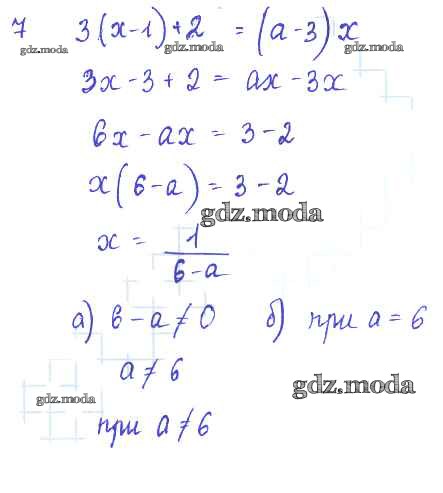 7 3(x-1)+2 = (a-3)x
gdz.moda gdz.moda gdz.moda
3x-3+2 = ax-3x
6x-ax = 3-2
x(6-a) = 3-2
gdz.moda
x = 1/(6-a)
а) 6-a≠0 б) при a=6
a≠6
gdz.moda gdz.moda
при a≠6